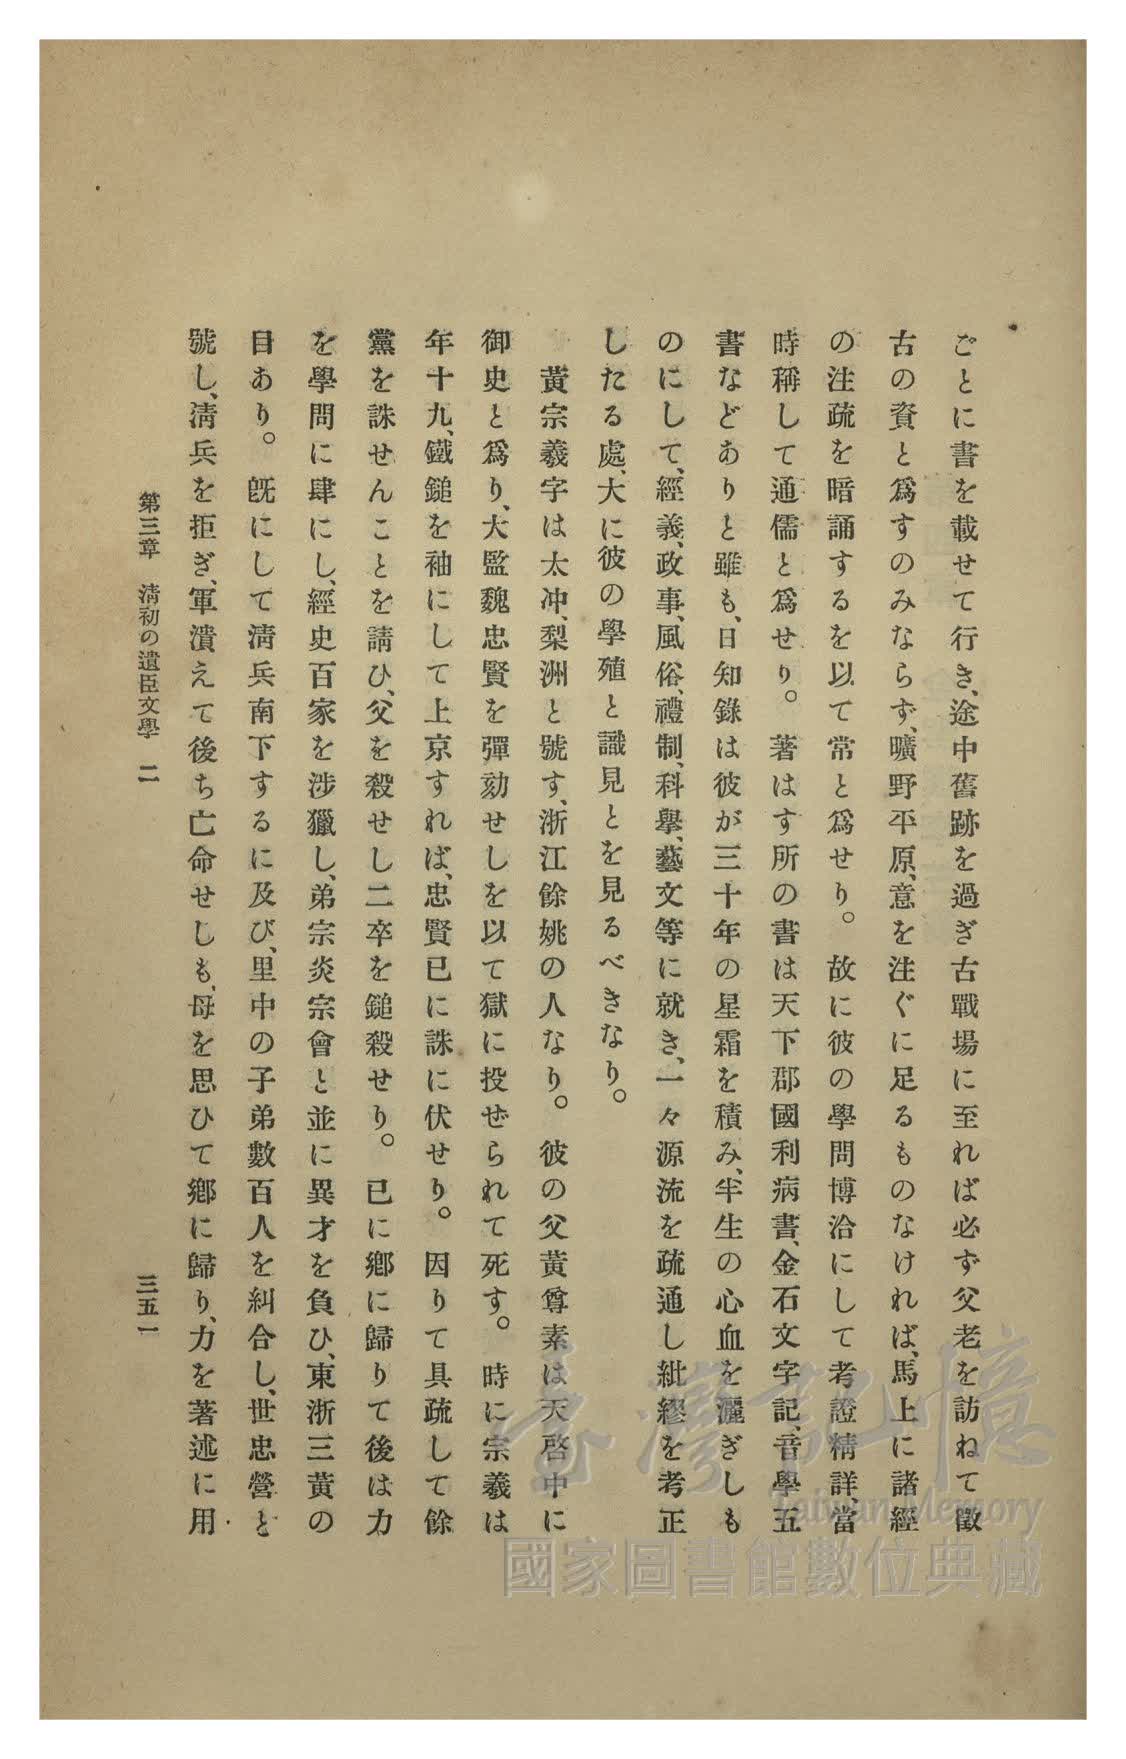 ごとに書を載せて行き、途中舊跡を過ぎ古戰場に至れば必ず父老を訪ねて徵
古の資と爲すのみならず、曠野平原、意を注ぐに足るものなければ、馬上に諸經
の注疏を暗誦するを以て常と爲せり。故に彼の學問博洽にして考證精詳、當
時稱して通儒と爲せり。著はす所の書は天下郡國利病書、金石文字記、音學五
書などありと雖も、日知錄は彼が三十年の星霜を積み、半生の心血を灑ぎしも
のにして、經義、政事、風俗、禮制、科擧、藝文等に就き、一々源流を疏通し紕繆を考正
したる處、大に彼の學殖と識見とを見るべきなり。
黃宗羲字は太冲、梨洲と號す、浙江餘姚の人なり。彼の父黃尊素は天啓中に
御史と爲り、大監魏忠賢を彈劾せしを以て獄に投ぜられて死す。時に宗羲は
年十九、鐵鎚を袖にして上京すれば、忠賢已に誅に伏せり。因りて具疏して餘
黨を誅せんことを請ひ、父を殺せし二卒を鎚殺せり。已に鄕に歸りて後は力
を學問に肆にし、經史百家を涉獵し、弟宗炎宗會と並に異才を負ひ、東浙三黃の
目あり。旣にして淸兵南下するに及び、里中の子弟數百人を糾合し、世忠營と
號し、淸兵を拒ぎ、軍潰えて後ち亡命せしも、母を思ひて鄕に歸り、力を著述に用
第三章 淸初の遺臣文學 二
三五一
臺灣記憶
Taiwan Memory
國家圖書館數位典藏